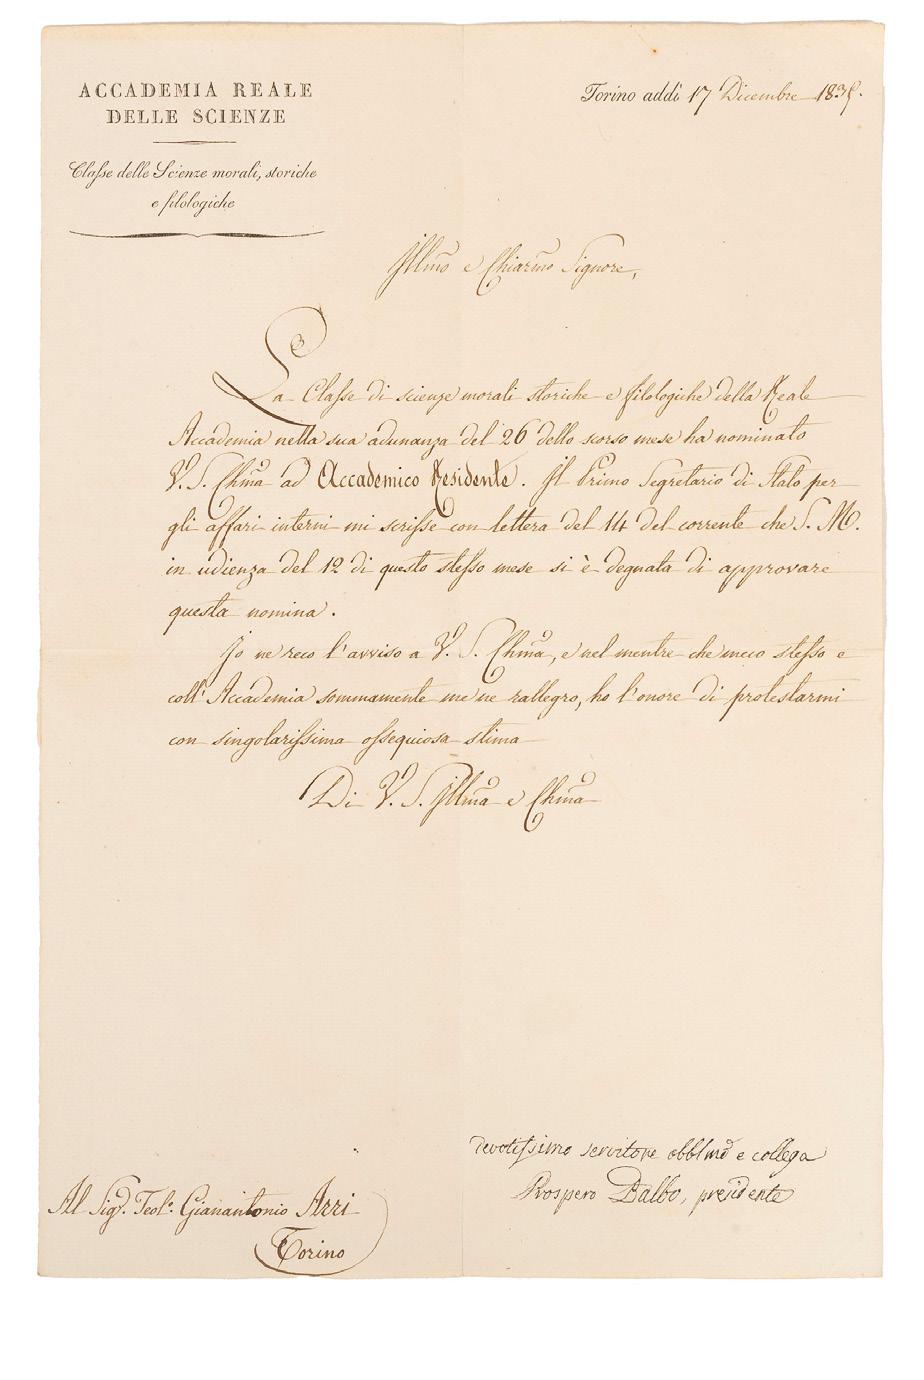 ACCADEMIA REALE
DELLE SCIENZE
Classe delle Scienze morali, storiche
e filologiche
Torino addì 17 Dicembre 1835.
Illmo e Chiarmo Signore,
La Classe di scienze morali storiche e filologiche della Reale
Accademia nella sua adunanza del 26 dello scorso mese ha nominato
V. S. Chma ad Accademico Residente. Il Primo Segretario di Stato per
gli affari interni mi scrisse con lettera del 14 del corrente che S. M.
in udienza del 12 di questo stesso mese si è degnata di approvare
questa nomina.
Io ne reco l'avviso a V. S. Chma, e nel mentre che meco stesso e
coll'Accademia sommamente me ne rallegro, ho l'onore di protestarmi
con singolarissima ossequiosa stima
Di V. S. Illma e Chma
devotissimo servitore obblmo e collega
Prospero Balbo, presidente
Al Sigr. Teolo. Gianantonio Arri
Torino